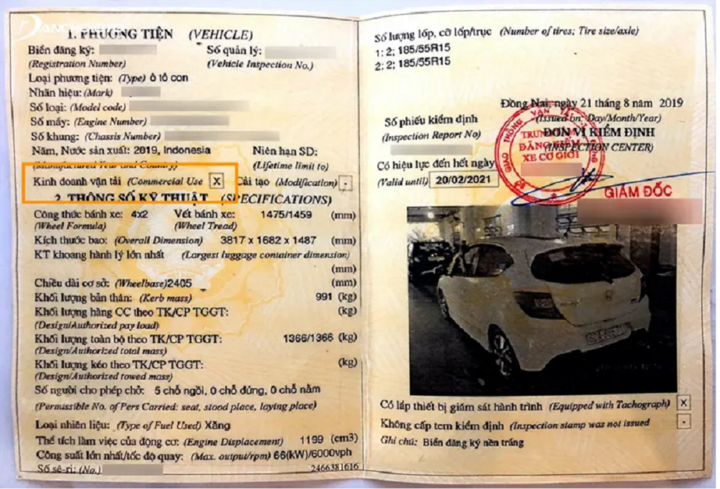 1. PHƯƠNG TIỆN (VEHICLE)
Biển đăng ký: Số quản lý:
(Registration Number) (Vehicle Inspection No.)
Loại phương tiện: (Type) ô tô con
Nhãn hiệu: (Mark)
Số loại: (Model code)
Số máy: (Engine Number)
Số khung: (Chassis Number)
Năm, Nước sản xuất: 2019, Indonesia Niên hạn SD:
(Manufactured Year and Country) (Lifetime limit to)
Kinh doanh vận tải (Commercial Use X Cải tạo (Modification) -
2. THÔNG SỐ KỸ THUẬT (SPECIFICATIONS)
Công thức bánh xe: 4x2 Vết bánh xe: 1475/1459 (mm)
(Wheel Formula) (Wheel Tread)
Kích thước bao: (Overall Dimension) 3817 x 1682 x 1487 (mm)
KT khoang hành lý lớn nhất (Largest luggage container dimension)
(mm)
Chiều dài cơ sở: (Wheelbase)2405 (mm)
Khối lượng bản thân: (Kerb mass) 991 (kg)
Khối lượng hàng CC theo TK/CP TGGT: (kg)
(Design/Authorized pay load)
Khối lượng toàn bộ theo TK/CP TGGT: 1366/1366 (kg)
(Design/Authorized total mass)
Khối lượng kéo theo TK/CP TGGT: (kg)
(Design/Authorized towed mass)
Số người cho phép chở: 5 chỗ ngồi, 0 chỗ đứng, 0 chỗ nằm
(Permissible No. of Pers Carried: seat, stood place, laying place)
Loại nhiên liệu: (Type of Fuel Used) Xăng
Thể tích làm việc của động cơ: (Engine Displacement) 1199 (cm3)
Công suất lớn nhất/tốc độ quay: (Max. output/rpm) 66(kW)/6000vph
Số sê-ri: (No.) 2466381616
Số lượng lốp, cỡ lốp/trục (Number of tires; Tire size/axle)
1: 2; 185/55R15
2: 2; 185/55R15
Đồng Nai, ngày 21 tháng 8 năm 2019
(Issued on: Day/Month/Year)
Số phiếu kiểm định ĐƠN VỊ KIỂM ĐỊNH
(Inspection Report No) (INSPECTION CENTER)
Có hiệu lực đến hết ngày
(Valid until) 20/02/2021
ĐĂNG KIỂM
XE CƠ GIỚI
GIÁM ĐỐC
Có lắp thiết bị giám sát hành trình (Equipped with Tachograph) X
Không cấp tem kiểm định (Inspection stamp was not issued -
Ghi chú: Biển đăng ký nền trắng